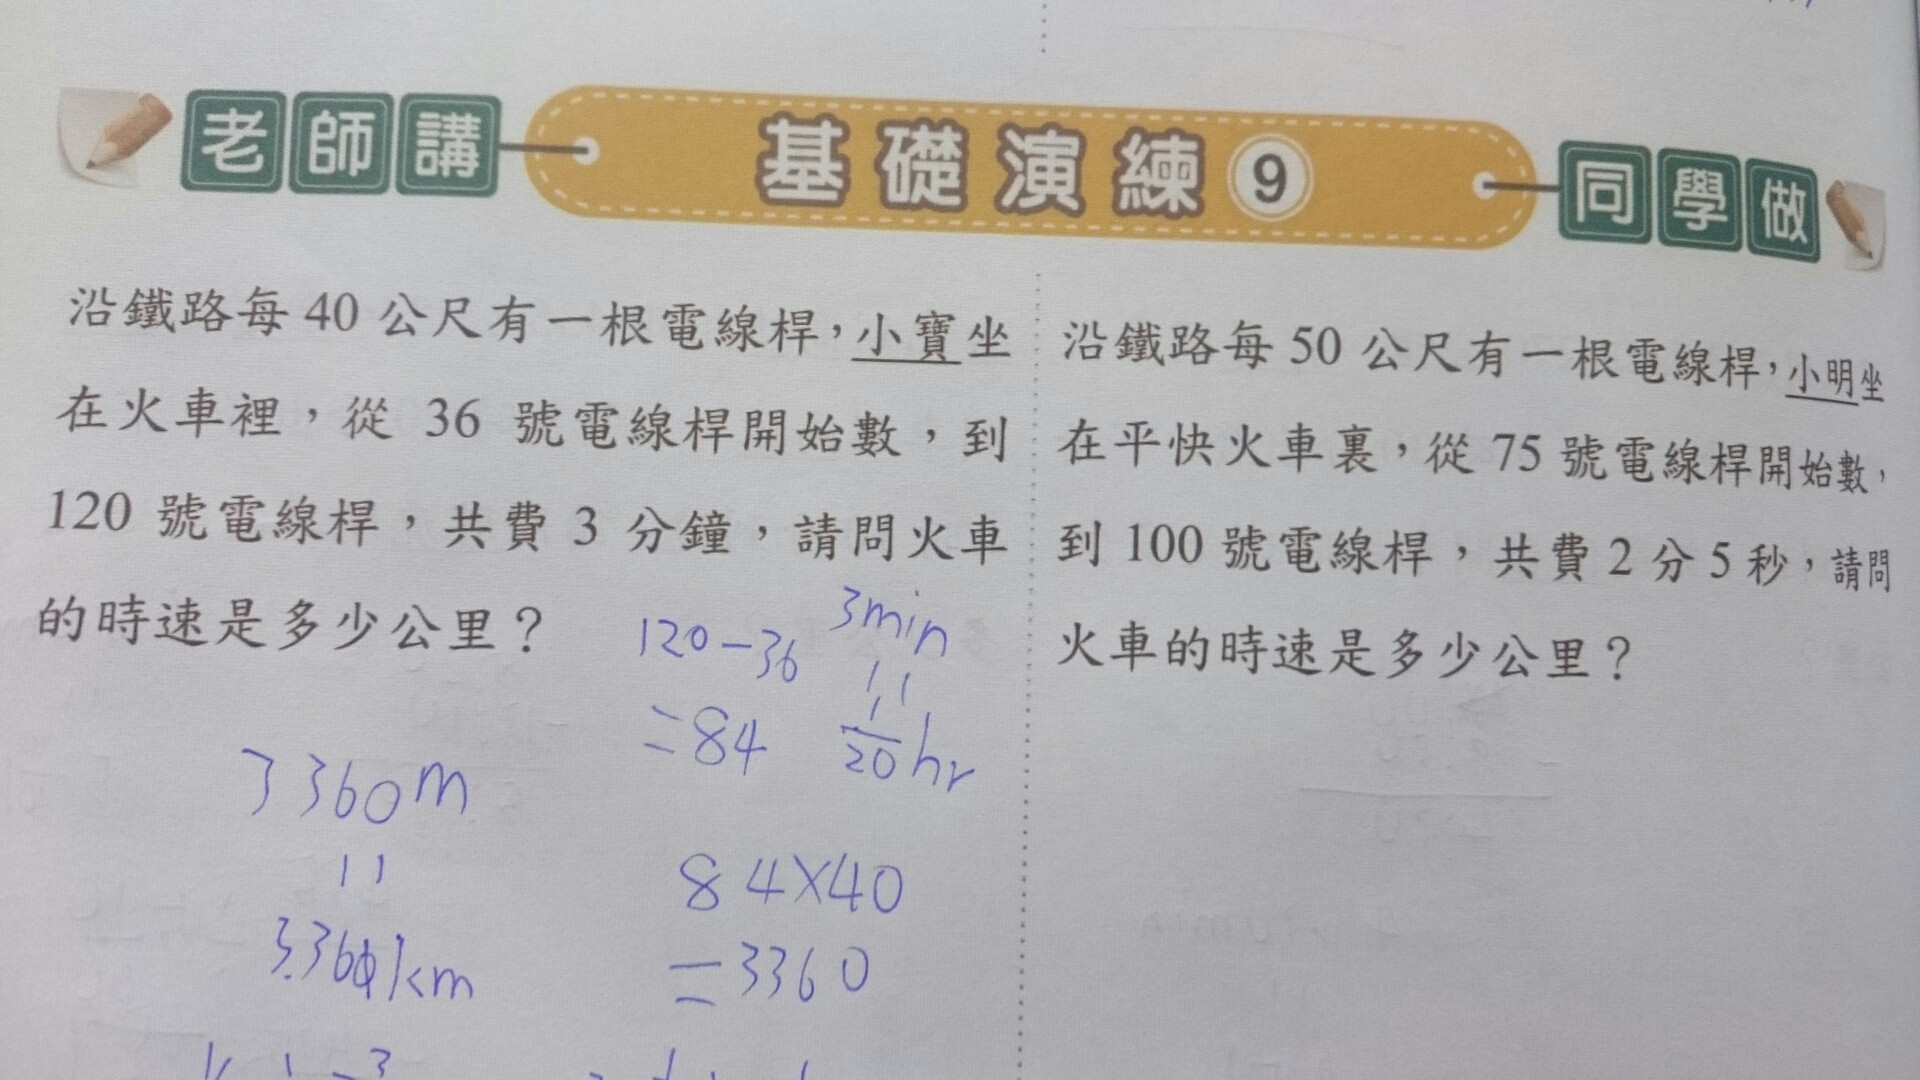 老師講 基礎演練 9 同學做
沿鐵路每 40 公尺有一根電線桿,小寶坐
在火車裡,從 36 號電線桿開始數,到
120 號電線桿,共費 3 分鐘,請問火車
的時速是多少公里?
120-36
=84
3min
11
1/20 hr
3360m
11
3.360km
84×40
=3360
沿鐵路每 50 公尺有一根電線桿,小明坐
在平快火車裏,從 75 號電線桿開始數,
到 100 號電線桿,共費 2 分 5 秒,請問
火車的時速是多少公里?